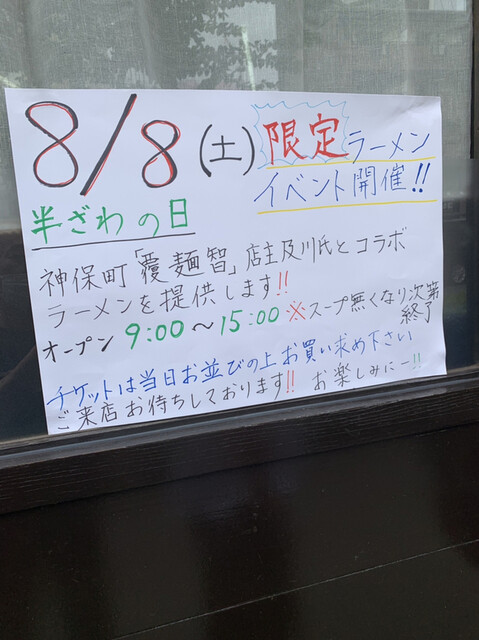 8/8(土)限定ラーメン
イベント開催!!
半ざわの日
神保町「覆麺智」店主及川氏とコラボ
ラーメンを提供します!!
オープン 9:00〜15:00 ※スープ無くなり次第
終了
チケットは当日お並びの上お買い求め下さい
ご来店お待ちしております!! お楽しみにー!!